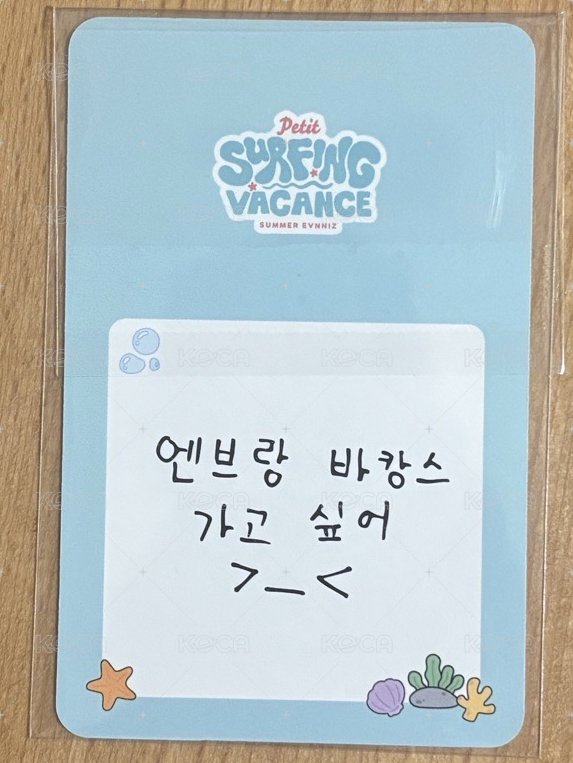 Petit
SURFING
VACANCE
SUMMER EVNNIZ
엔브랑 바캉스
가고 싶어
>_<
KOCA
KOCA
KOCA
KOCA
KOCA
KOCA
KOCA